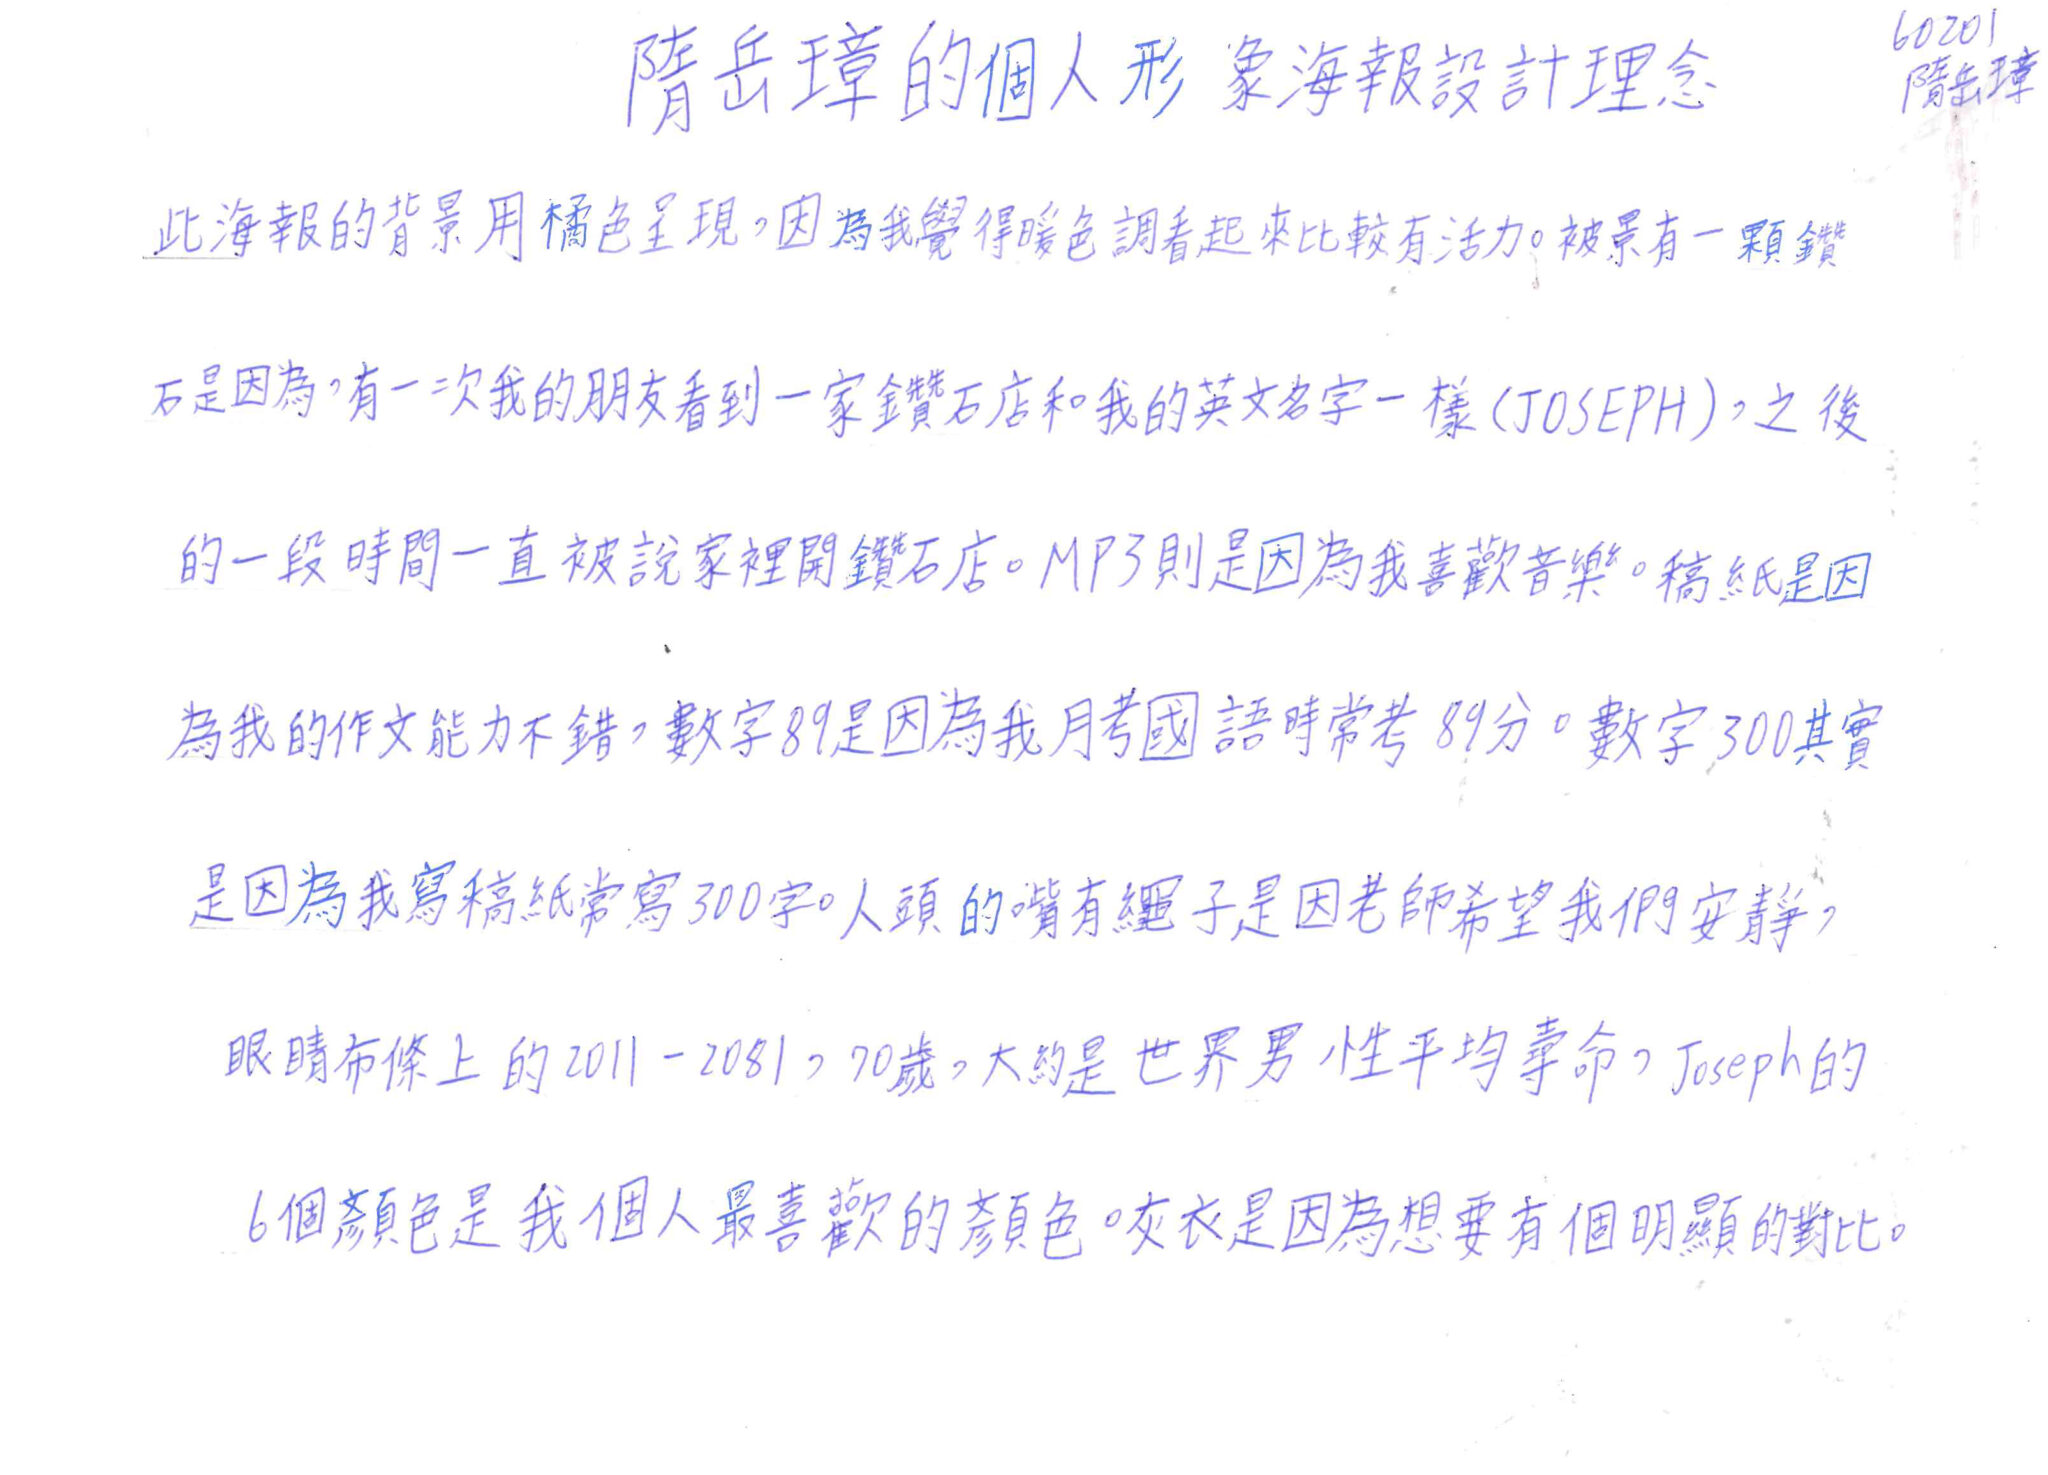 隋岳璋的個人形象海報設計理念
60201
隋岳璋
此海報的背景用橘色呈現，因為我覺得暖色調看起來比較有活力。被景有一顆鑽
石是因為，有一次我的朋友看到一家鑽石店和我的英文名字一樣(JOSEPH)，之後
的一段時間一直被說家裡開鑽石店。MP3則是因為我喜歡音樂。稿紙是因
為我的作文能力不錯，數字89是因為我月考國語時常考89分。數字300其實
是因為我寫稿紙常寫300字。人頭的嘴有繩子是因老師希望我們安靜，
眼睛布條上的2011-2081，70歲，大約是世界男性平均壽命，Joseph的
6個顏色是我個人最喜歡的顏色。灰衣是因為想要有個明顯的對比。